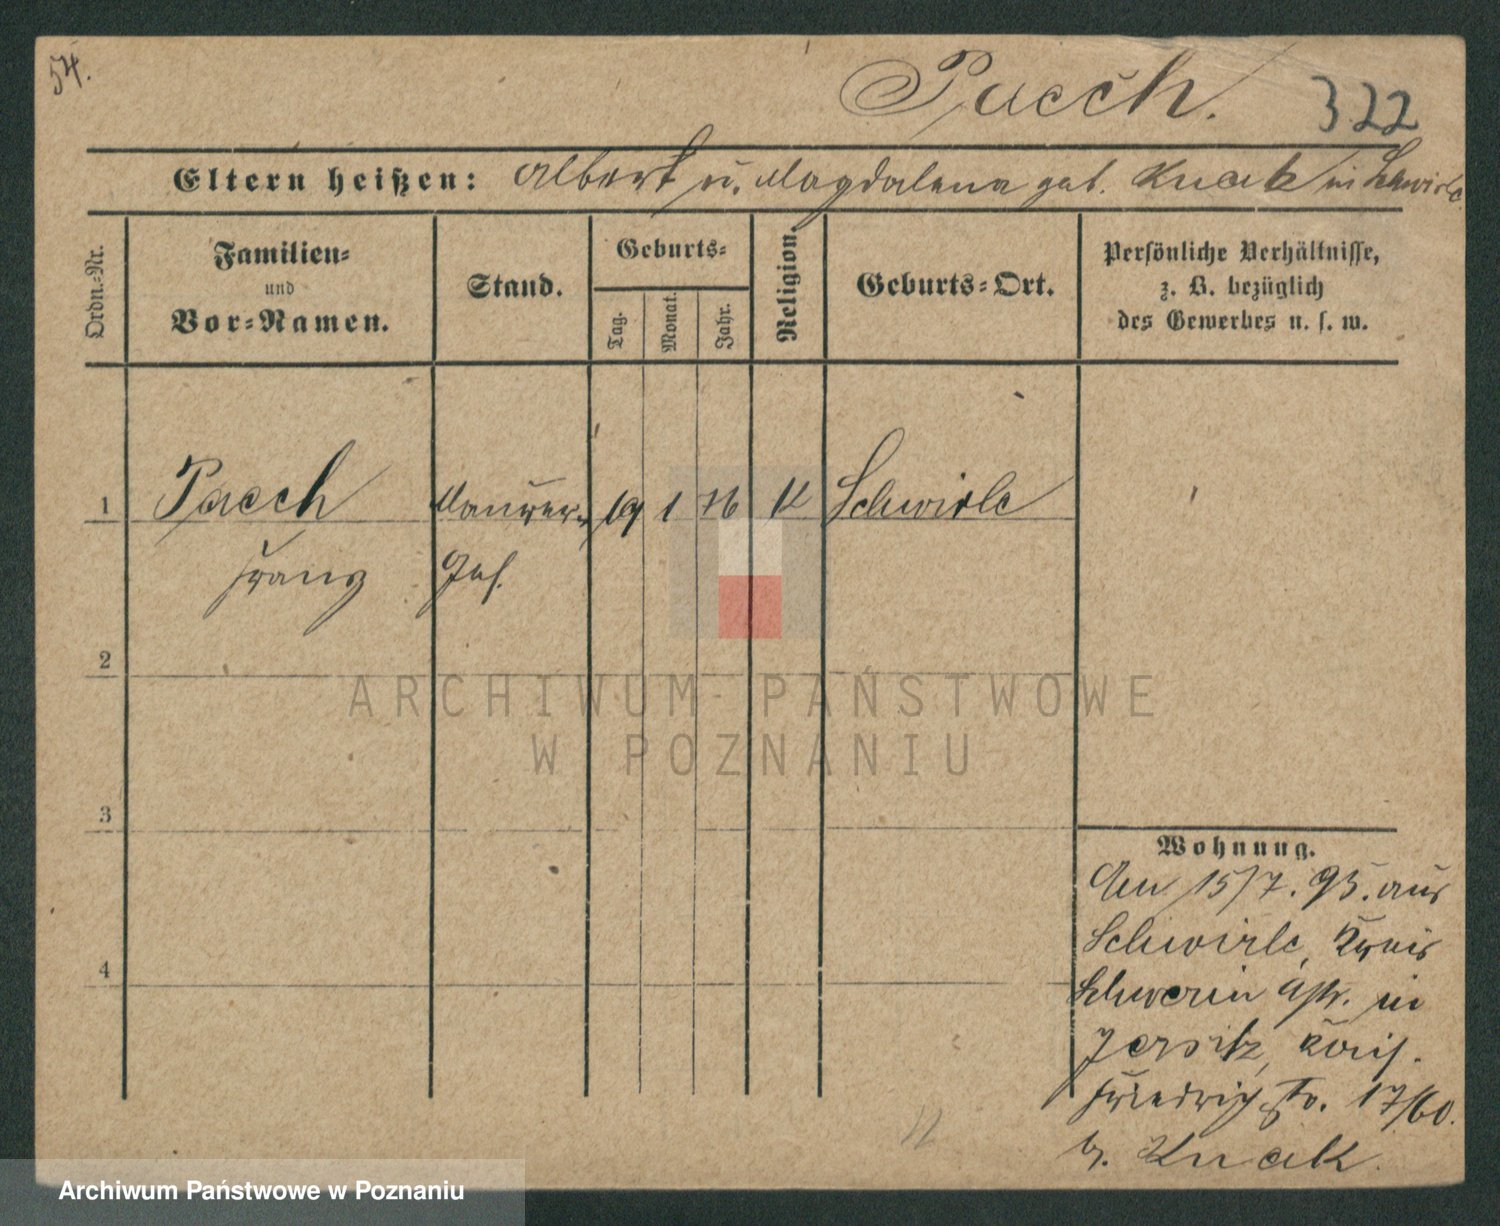 54.
Paech.
322
Eltern heißen: Albert u. Magdalena geb. Knak in Schwirle
Ordn.-Nr.
Familien-
und
Vor-Namen.
Stand.
Geburts-
Tag.
Monat.
Jahr.
Religion.
Geburts-Ort.
Persönliche Verhältnisse,
z. B. bezüglich
des Gewerbes u. s. w.
1 Paech Maurer- 19 1 76 K Schwirle
Franz Ges.
2
ARCHIWUM PAŃSTWOWE
W POZNANIU
3
Wohnung.
Am 15/7. 93. aus
Schwirle, Kreis
4
Schwerin a/W. in
Jersitz, Kais.
Friedrichstr. 17/60.
b. Knak.
Archiwum Państwowe w Poznaniu